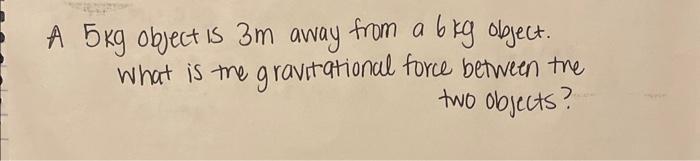 A 5kg object is 3m away from a 6kg object.
What is the gravitational force between the
two objects?